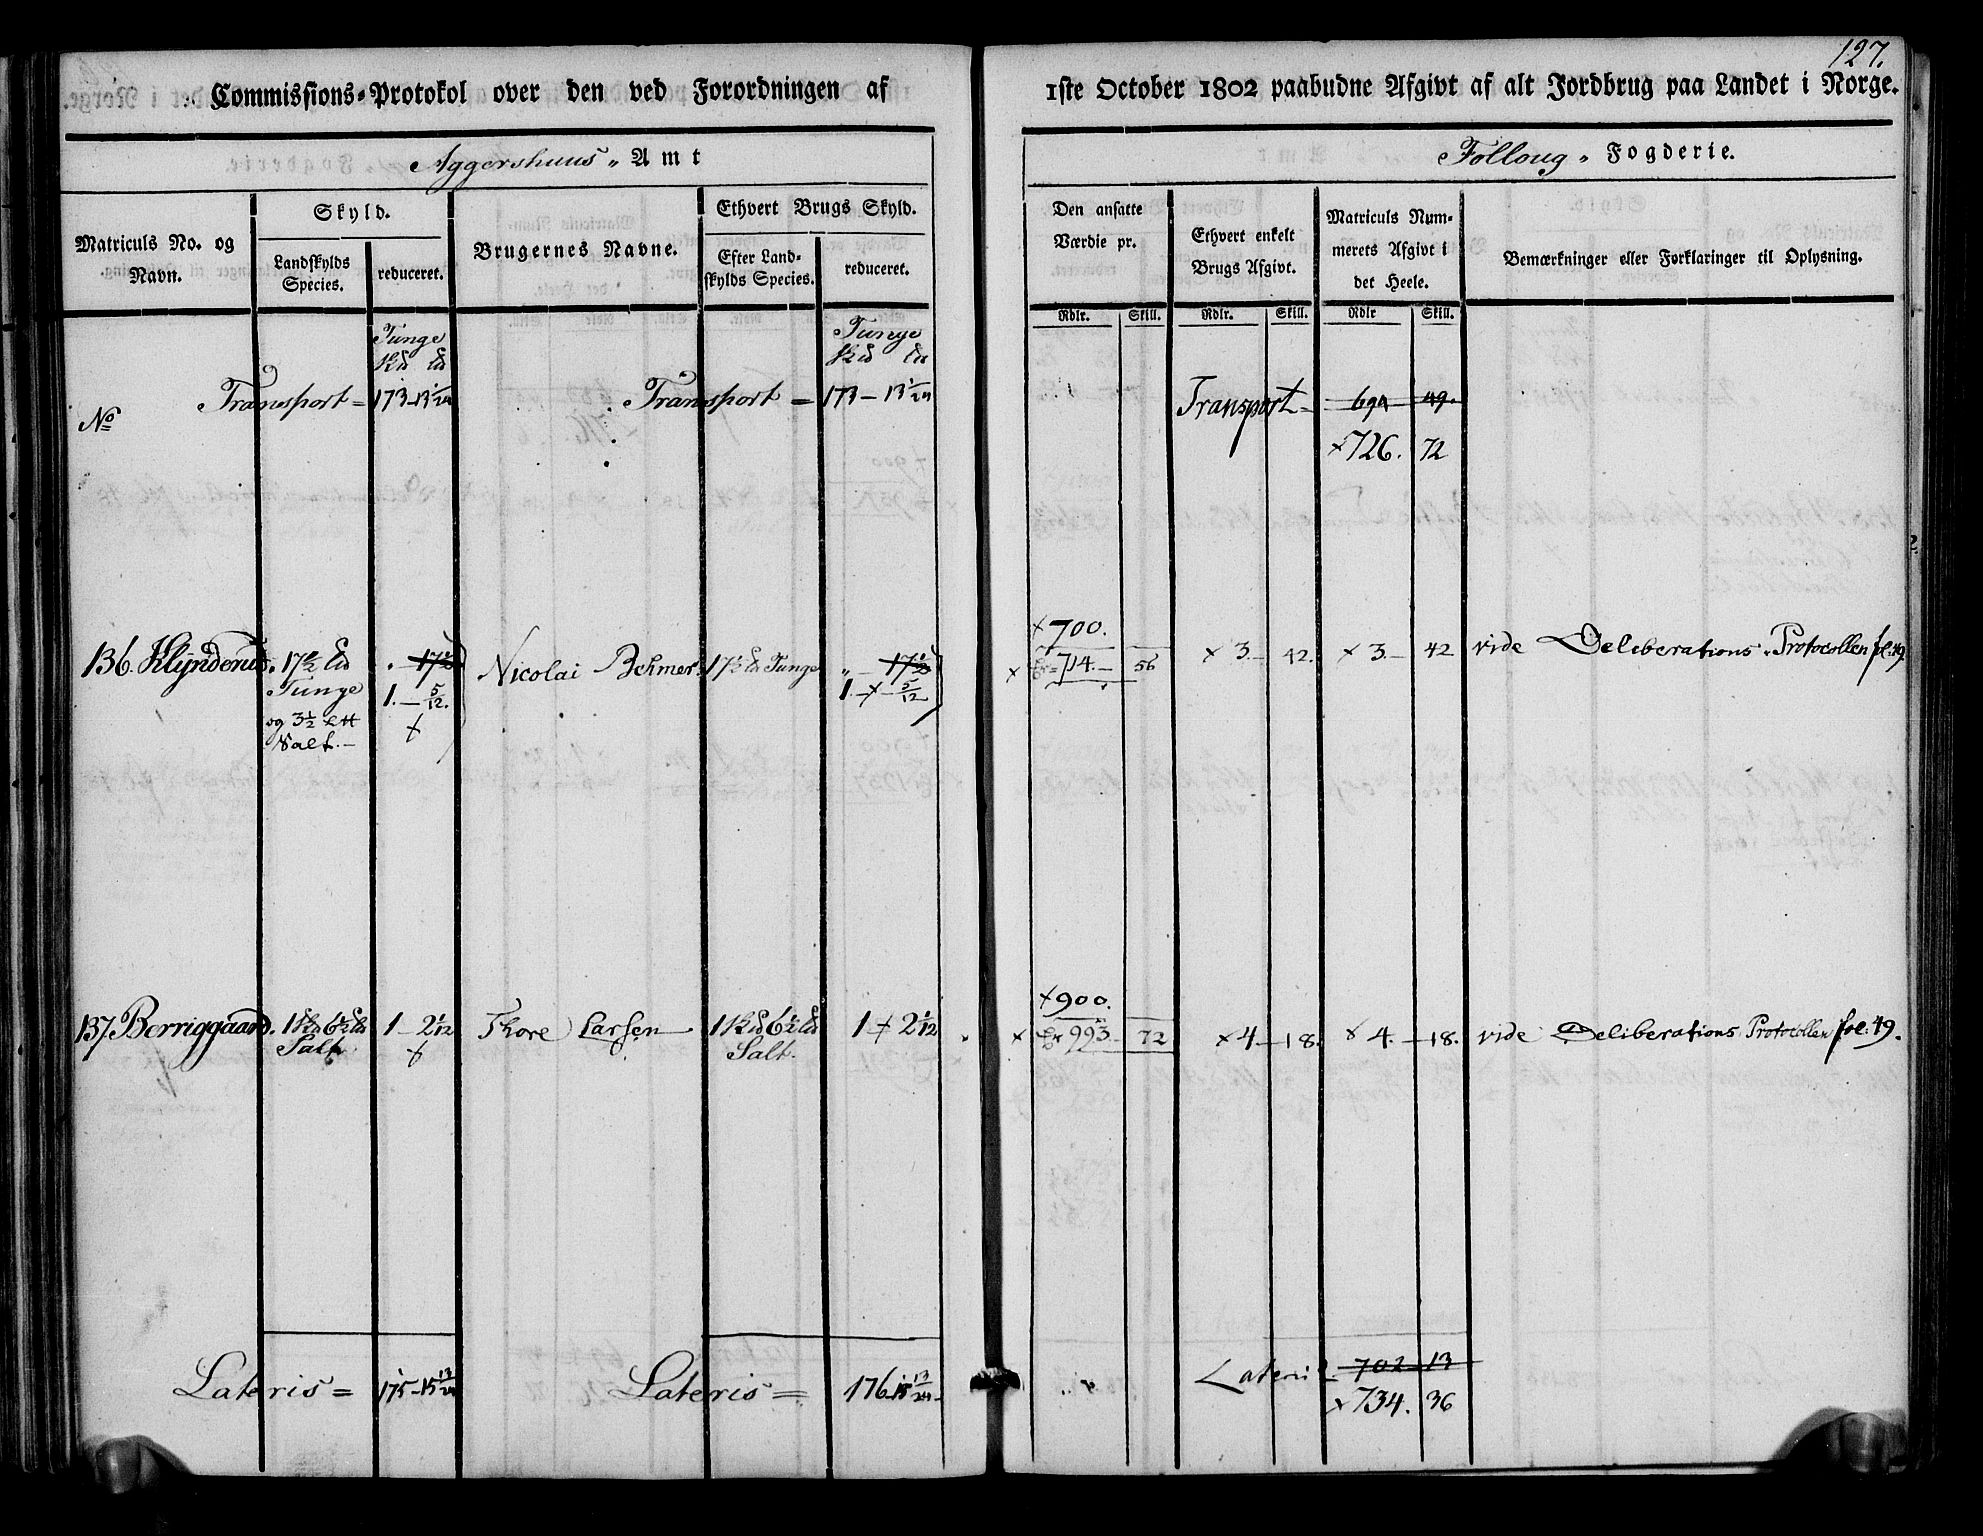 127.
Commissions-Protokol over den ved Forordningen af 1ste October 1802 paabudne Afgivt af alt Jordbrug paa Landet i Norge.
Aggershuus „ Amt
Folloug „ Fogderie.
Matriculs No. og Navn.
Skyld.
Landskylds Species.
reduceret.
Brugernes Navne.
Ethvert Brugs Skyld.
Efter Landskylds Species.
reduceret.
Den ansatte Værdie pr.
Ethvert enkelt Brugs Afgivt.
Matriculs Nummerets Afgivt i det Heele.
Bemærkninger eller Forklaringer til Oplysning.
Rdlr. Skill. Rdlr. Skill. Rdlr Skill.
Tunge Tunge
No Transport = 173-13 1/24 Transport = 173 - 13 1/24 Transport = 49.
×726. 72
×700.
136. 17 1/2 17 1/2 Nicolai 17 1/2 Tunge 17 1/2 × 714.- 56 × 3.- 42. × 3.- 42 vide Deliberations-Protocollen fol: 49
Tunge 1.- 5/12. 1.-×- 5/12
og 3 1/2
Salt.-
×900.
137. Berriggaard. 6 1/2 1 - 2 1/12 Thore Larsen 6 1/2 1 × 2 1/12 × 993. 72 ×4 - 18. × 4. - 18. vide Deliberations Protocollen fol: 49.
Salt Salt.
Lateris = 175-15 13/24 Lateris = 176-15 13/24 Lateris 702 13
×734. 36